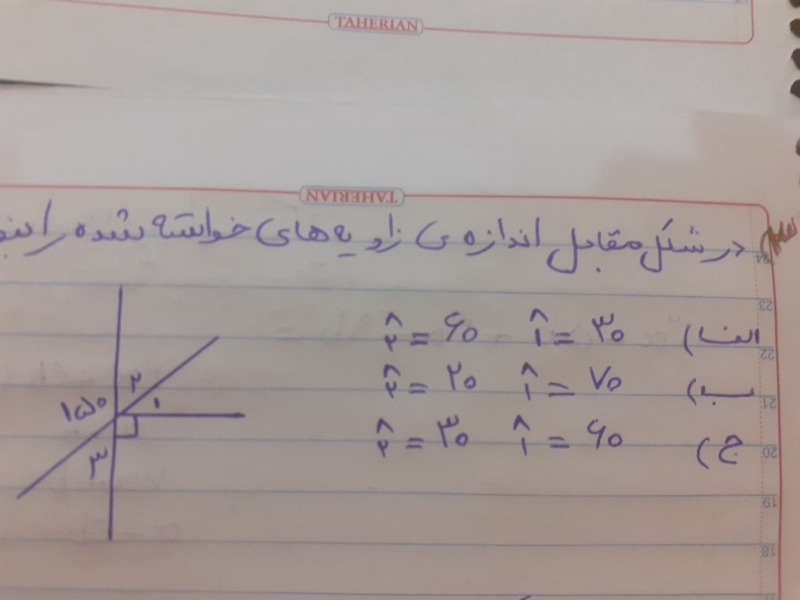 TAHERIAN
TAHERIAN
در شکل مقابل اندازه ی زاویه های خواسته شده را
الف) 1̂ = ۳۰ ۲̂ = ۶۰
ب) 1̂ = ۷۰ ۲̂ = ۲۰
ج) 1̂ = ۶۰ ۲̂ = ۳۰
۲
۱
۱۵۰
۳
24
23
22
21
20
19
18